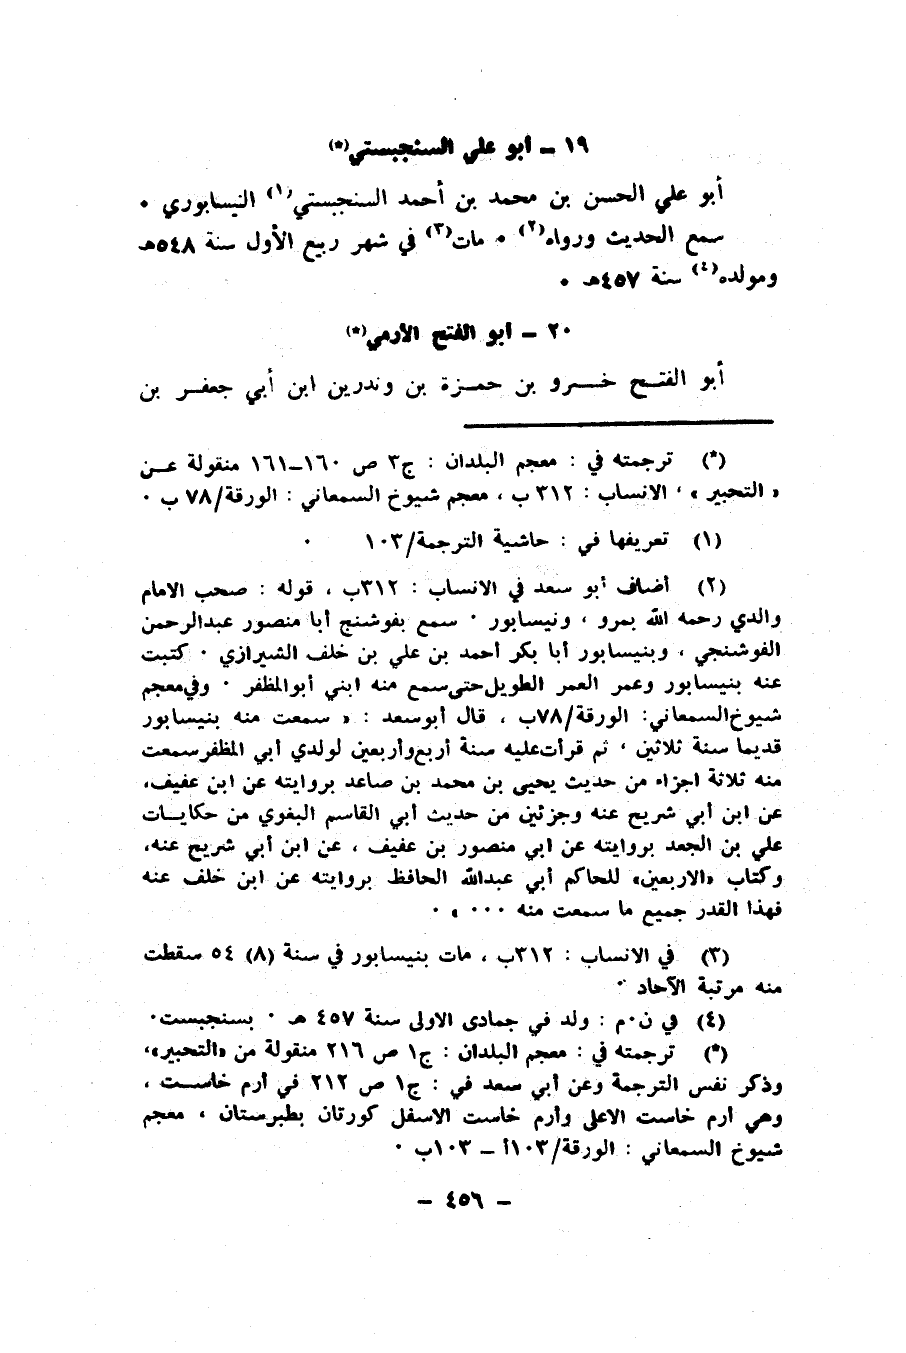 ١٩ ـ ابو علي السنجبستي(*)
أبو علي الحسن بن محمد بن أحمد السنجبستي(١) النيسابوري ٠
سمع الحديث ورواه(٢) ٠ مات(٣) في شهر ربيع الأول سنة ٥٤٨هـ
ومولده(٤) سنة ٤٥٧هـ ٠
٢٠ ـ ابو الفتح الأرمي(*)
أبو الفتـــح خـــرو بن حمـزة بن وندرين ابن أبي جعفـــر بن
(*) ترجمته في : معجم البلدان : ج٣ ص ١٦٠ـ١٦١ منقولة عــن
« التحبير » ، الانساب : ٣١٢ ب ، معجم شيوخ السمعاني : الورقة/٧٨ ب ٠
(١) تعريفها في : حاشية الترجمة/١٠٣ ٠
(٢) أضاف أبو سعد في الانساب : ٣١٢ب ، قوله : صحب الامام
والدي رحمه الله بمرو ، ونيسابور ٠ سمع بفوشنج أبا منصور عبدالرحمن
الفوشنجي ، وبنيسابور أبا بكر أحمد بن علي بن خلف الشيرازي ٠ كتبت
عنه بنيسابور وعمر العمر الطويل حتى سمع منه ابني أبوالمظفر ٠ وفي معجم
شيوخ السمعاني: الورقة/٧٨ب ، قال أبوسعد : « سمعت منه بنيسابور
قديما سنة ثلاثين ، ثم قرأت عليه سنة أربع وأربعين لولدي أبي المظفر سمعت
منه ثلاثة اجزاء من حديث يحيى بن محمد بن صاعد بروايته عن ابن عفيف،
عن ابن أبي شريح عنه وجزئين من حديث أبي القاسم البغوي من حكايــات
علي بن الجعد بروايته عن ابي منصور بن عفيف ، عن ابن أبي شريح عنه،
وكتاب «الاربعين» للحاكم أبي عبدالله الحافظ بروايته عن ابن خلف عنه
فهذا القدر جميع ما سمعت منه ٠٠٠ » ٠
(٣) في الانساب : ٣١٢ب ، مات بنيسابور في سنة (٨) ٥٤ سقطت
منه مرتبة الآحاد ٠
(٤) في ن٠م : ولد في جمادى الاولى سنة ٤٥٧ هـ ٠ بسنجبست٠
(*) ترجمته في : معجم البلدان : ج١ ص ٢١٦ منقولة من «التحبير»،
وذكر نفس الترجمة وعن أبي سعد في : ج١ ص ٢١٢ في أرم خاســت ،
وهي أرم خاست الاعلى وأرم خاست الاسفل كورتان بطبرستان ، معجم
شيوخ السمعاني : الورقة/١٠٣أ ـ ١٠٣ب ٠
ـ ٤٥٦ ـ